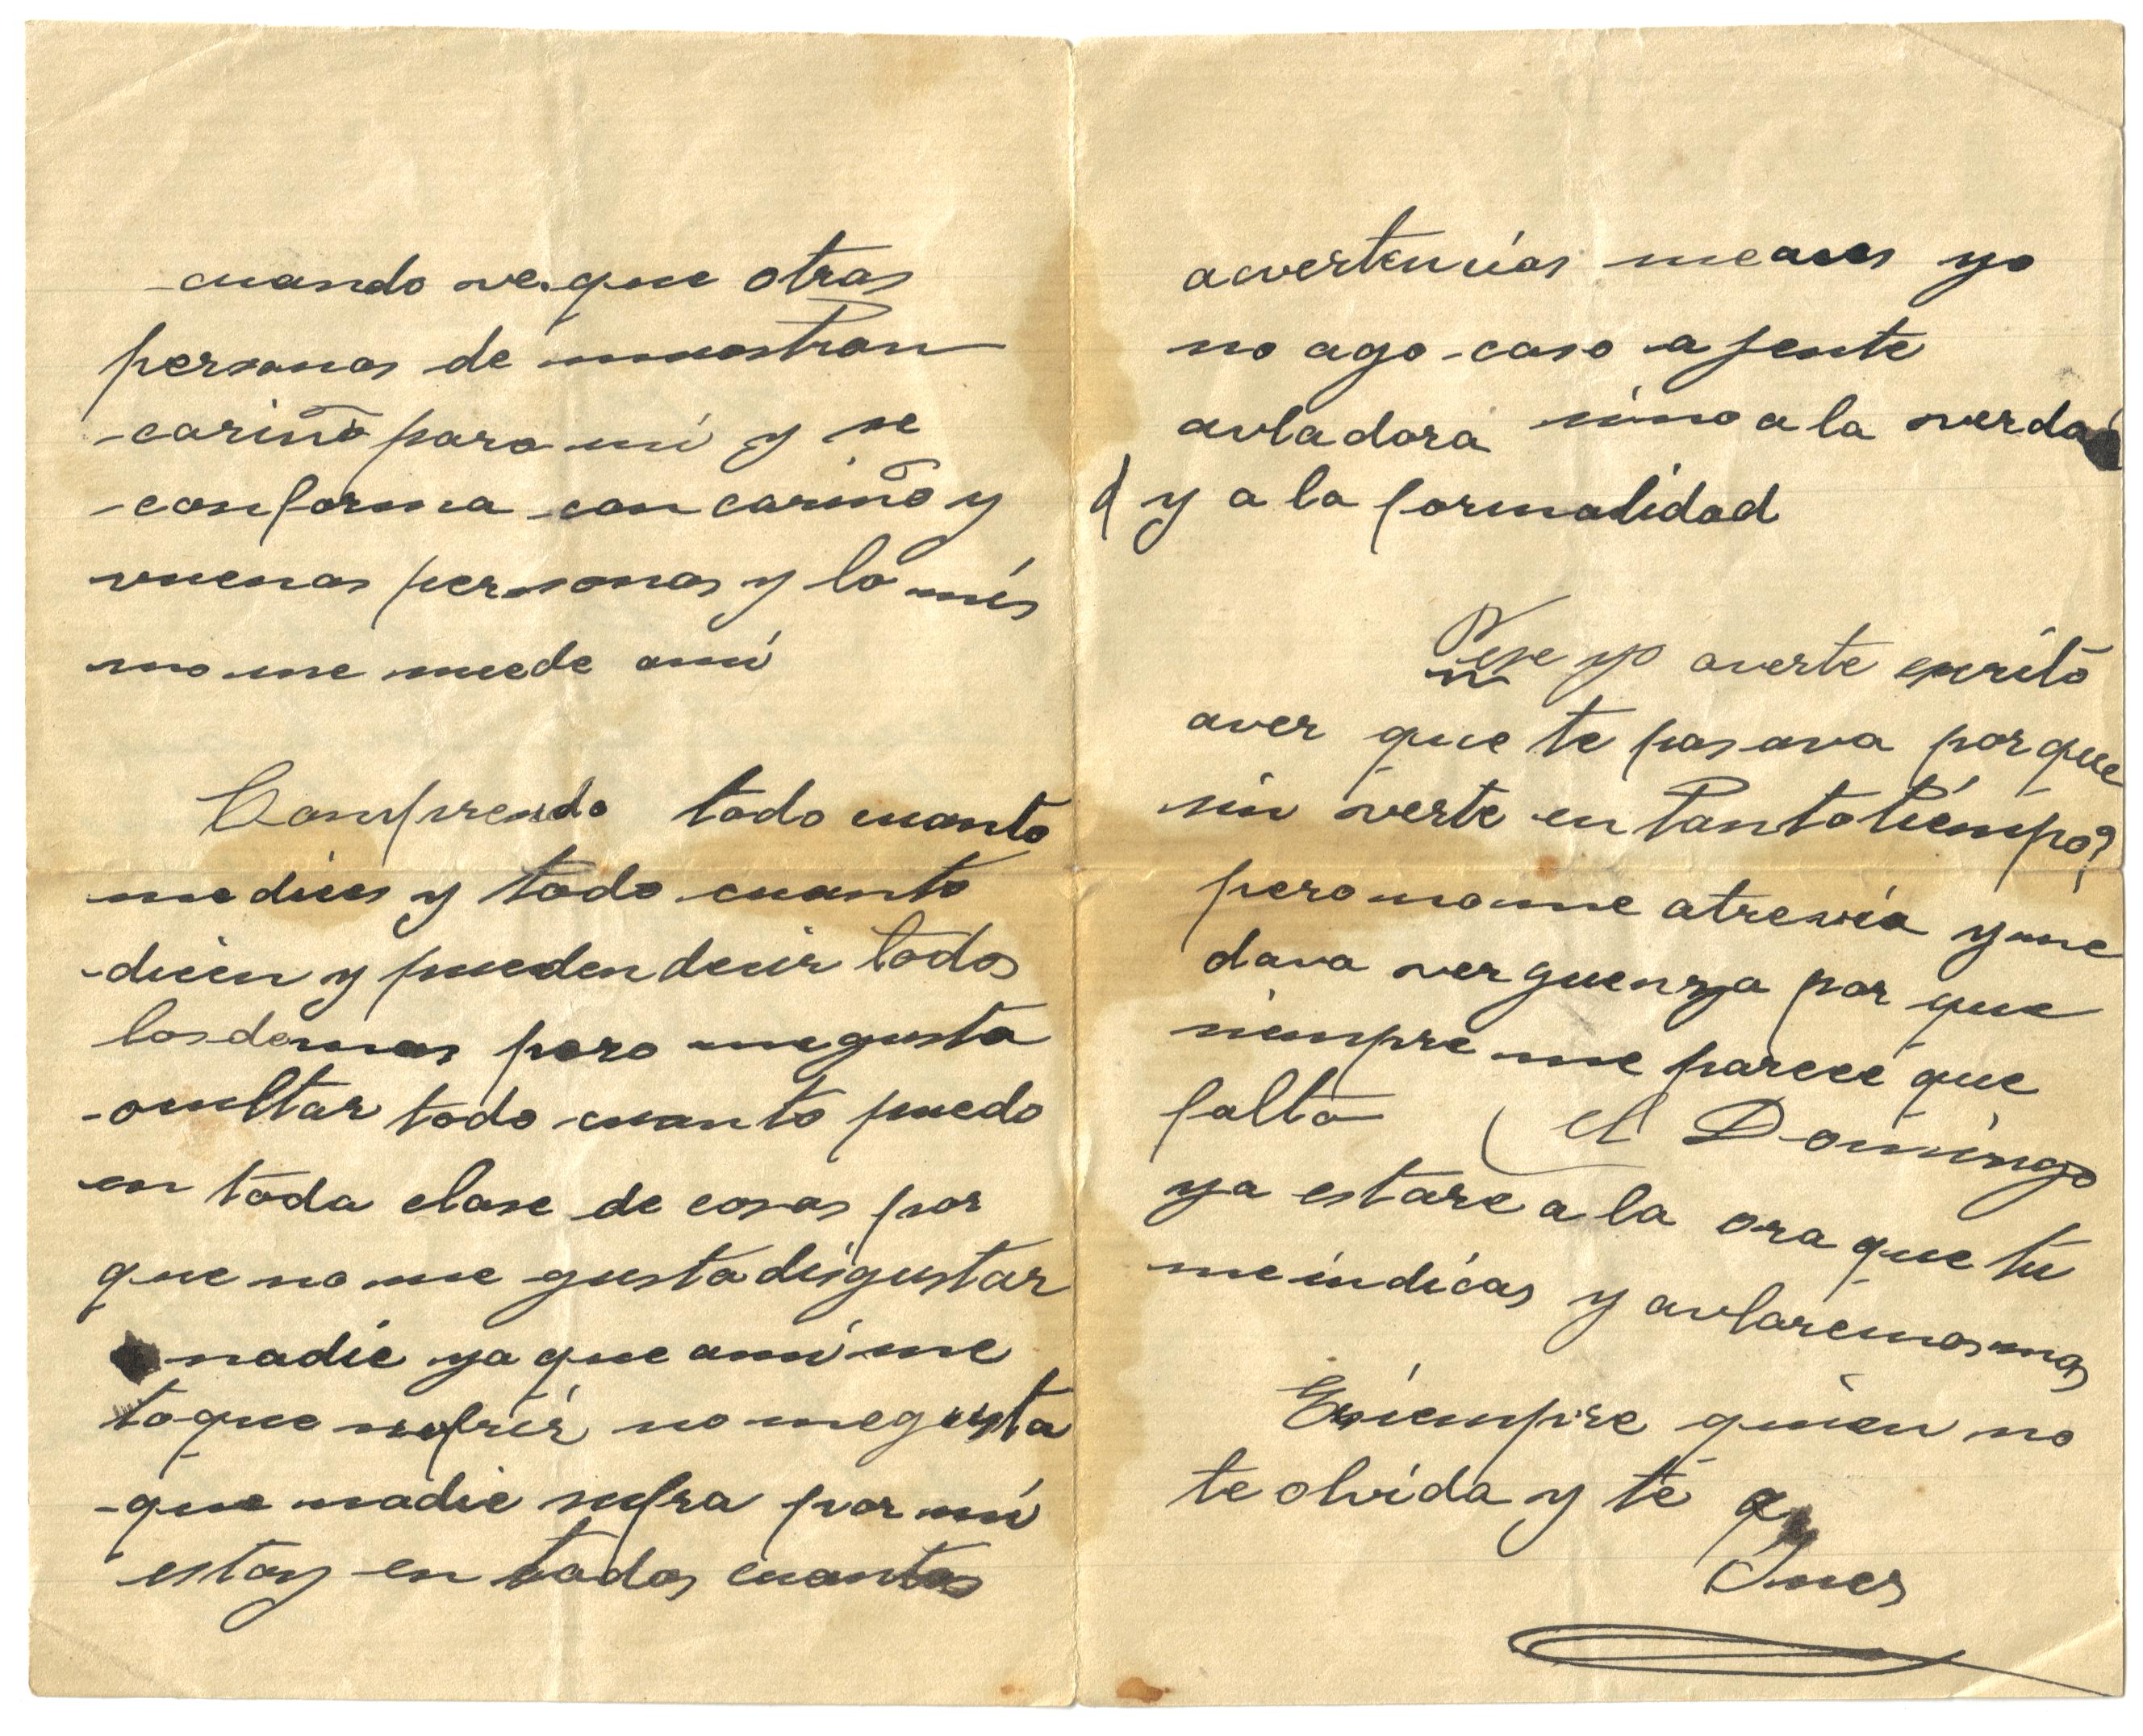 cuando ve que otras
personas de muestran
cariño para mi y se
conforma con cariño y
vuenas personas y lo mis
mo me suede ami
Comprendo todo cuanto
me dices y todo cuanto
dicen y pueden decir todos
los demas pero me gusta
ocultar todo cuanto puedo
en toda clase de cosas por
que no me gusta disgustar
nadie ya que ami me
toque sufrir no me gusta
que nadie sufra por mi
estoy en todas cuantas
avertencias me aces yo
no ago caso a jente
avladora sino a la verda
d y a la formalidad
Pense yo averte escrito
aver que te pasava por que
sin verte en tanto tiempo?
pero no me atrevia y me
dava verguenza por que
siempre me parece que
falto El Domingo
ya estare a la ora que tu
me indicas y avlaremos mas
Siempre quien no
te olvida y te q
Ines